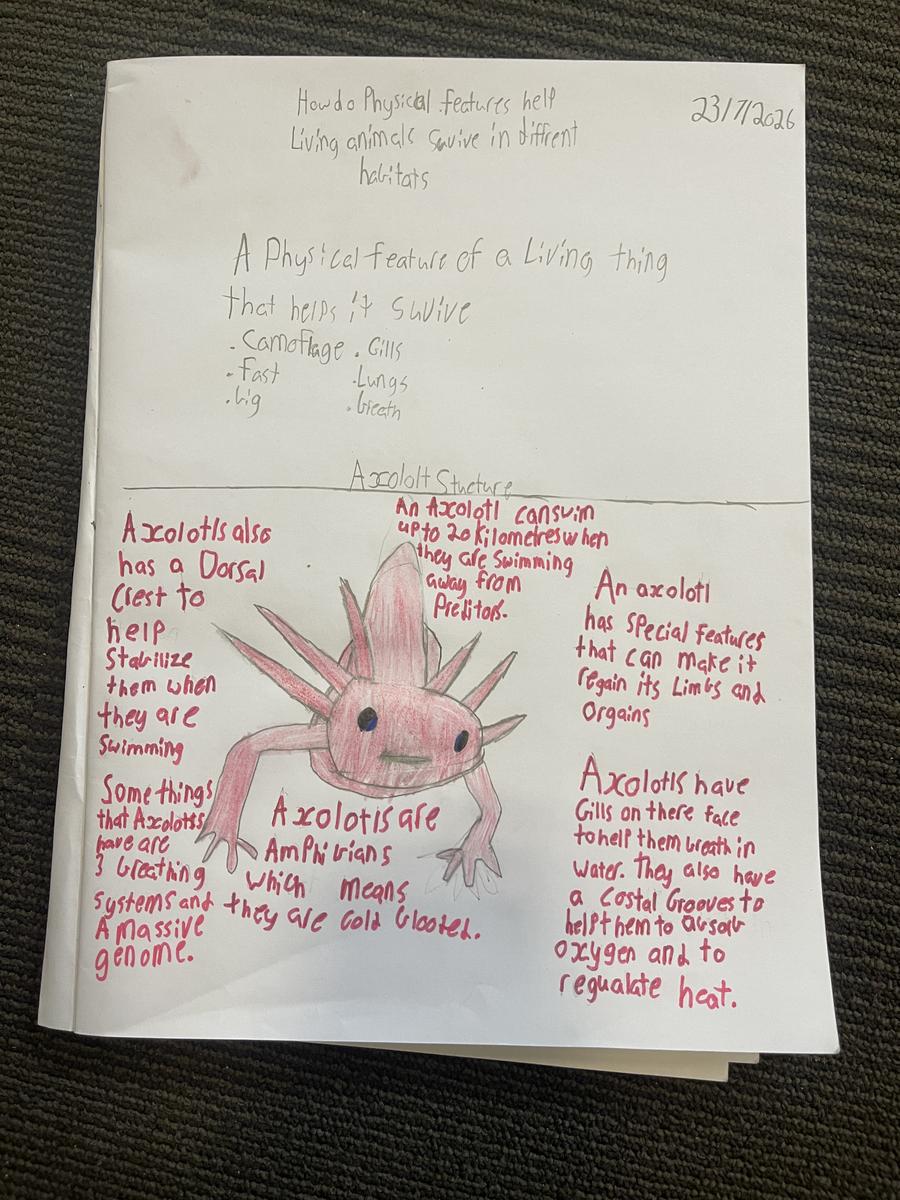 How do Physical features help
Living animals suvive in diffrent
habitats
23/7/2026
A Physical feature of a Living thing
that helps it suvive
. Camoflage
. Fast
. big
. Gills
. Lungs
. breath
Axololt Stucture
An Axolotl can swim
up to 20 kilometres when
they are swimming
away from
Preditors.
Axolotls also
has a Dorsal
Crest to
help
Stabilize
them when
they are
Swimming
Some things
that Axolotls
have are
3 breathing
systems and
A massive
genome.
Axolotls are
Amphibians
which means
they are cold blooted.
An axolotl
has special features
that can make it
regain its Limbs and
Orgains
Axolotls have
Gills on there face
to help them breath in
water. They also have
a Costal Grooves to
help them to absorb
oxygen and to
regualate heat.